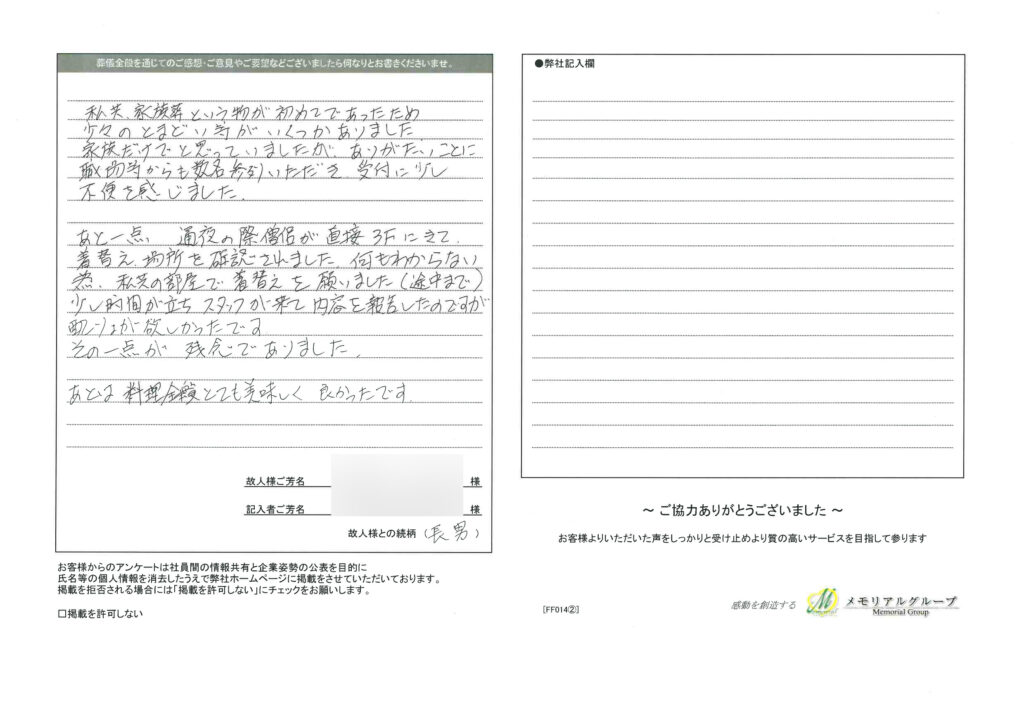 葬儀全般を通じてのご感想・ご意見やご要望などございましたら何なりとお書きくださいませ。
私共、家族葬という物が初めてであったため
少々のとまどい等がいくつかありました
家族だけでと思っていましたが、ありがたいことに
職場等からも数名参列いただき 受付に少し
不便を感じました。
あと一点 通夜の際僧侶が直接3Fにきて、
着替え場所を確認されました。何もわからない
為、私共の部屋で着替えを願いました(途中まで)
少し時間が立ち スタッフが来て内容を報告したのですが
が欲しかったです
その一点が 残念でありました。
あとは 料理全般とても美味しく 良かったです。
故人様ご芳名 様
記入者ご芳名 様
故人様との続柄 (長男)
お客様からのアンケートは社員間の情報共有と企業姿勢の公表を目的に
氏名等の個人情報を消去したうえで弊社ホームページに掲載をさせていただいております。
掲載を拒否される場合には「掲載を許可しない」にチェックをお願いします。
□掲載を許可しない
●弊社記入欄
~ ご協力ありがとうございました ~
お客様よりいただいた声をしっかりと受け止めより質の高いサービスを目指して参ります
[FF014②]
感動を創造する
M
Memorial
メモリアルグループ
Memorial Group